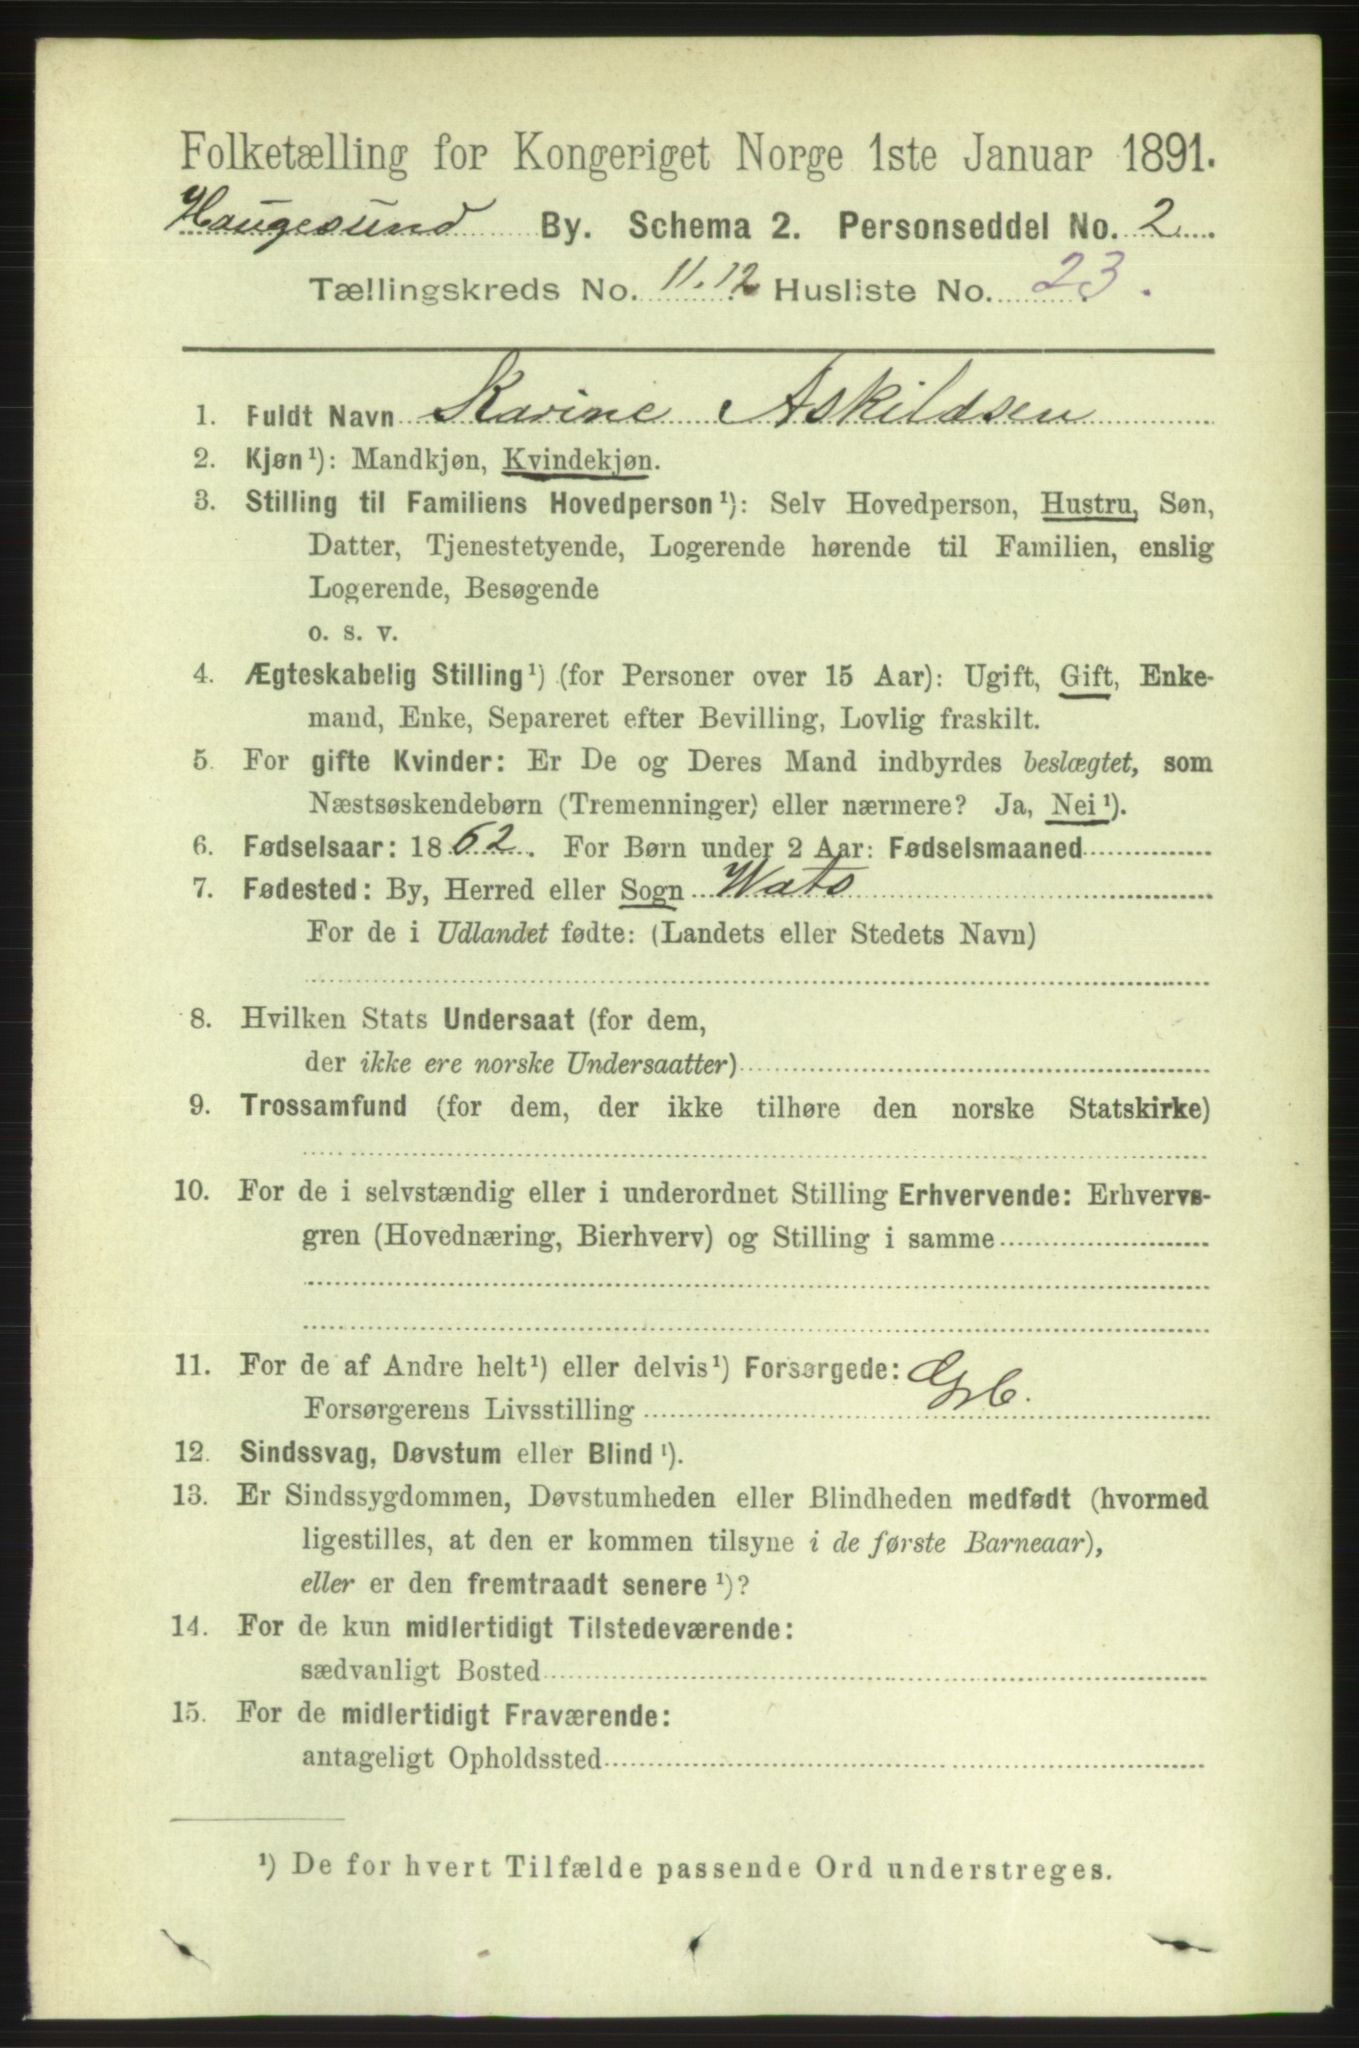 Folketælling for Kongeriget Norge 1ste Januar 1891.
Haugesund By. Schema 2. Personseddel No. 2
Tællingskreds No. 11.12 Husliste No. 23.
1. Fuldt Navn Karine Askildsen
2. Kjøn¹): Mandkjøn, Kvindekjøn.
3. Stilling til Familiens Hovedperson¹): Selv Hovedperson, Hustru, Søn,
Datter, Tjenestetyende, Logerende hørende til Familien, enslig
Logerende, Besøgende
o. s. v.
4. Ægteskabelig Stilling¹) (for Personer over 15 Aar): Ugift, Gift, Enke-
mand, Enke, Separeret efter Bevilling, Lovlig fraskilt.
5. For gifte Kvinder: Er De og Deres Mand indbyrdes beslægtet, som
Næstsøskendebørn (Tremenninger) eller nærmere? Ja, Nei¹).
6. Fødselsaar: 1862. For Børn under 2 Aar: Fødselsmaaned
7. Fødested: By, Herred eller Sogn Wats
For de i Udlandet fødte: (Landets eller Stedets Navn)
8. Hvilken Stats Undersaat (for dem,
der ikke ere norske Undersaatter)
9. Trossamfund (for dem, der ikke tilhøre den norske Statskirke)
10. For de i selvstændig eller i underordnet Stilling Erhvervende: Erhvervs-
gren (Hovednæring, Bierhverv) og Stilling i samme
11. For de af Andre helt¹) eller delvis¹) Forsørgede:
Forsørgerens Livsstilling
12. Sindssvag, Døvstum eller Blind¹).
13. Er Sindssygdommen, Døvstumheden eller Blindheden medfødt (hvormed
ligestilles, at den er kommen tilsyne i de første Barneaar),
eller er den fremtraadt senere¹)?
14. For de kun midlertidigt Tilstedeværende:
sædvanligt Bosted
15. For de midlertidigt Fraværende:
antageligt Opholdssted
¹) De for hvert Tilfælde passende Ord understreges.